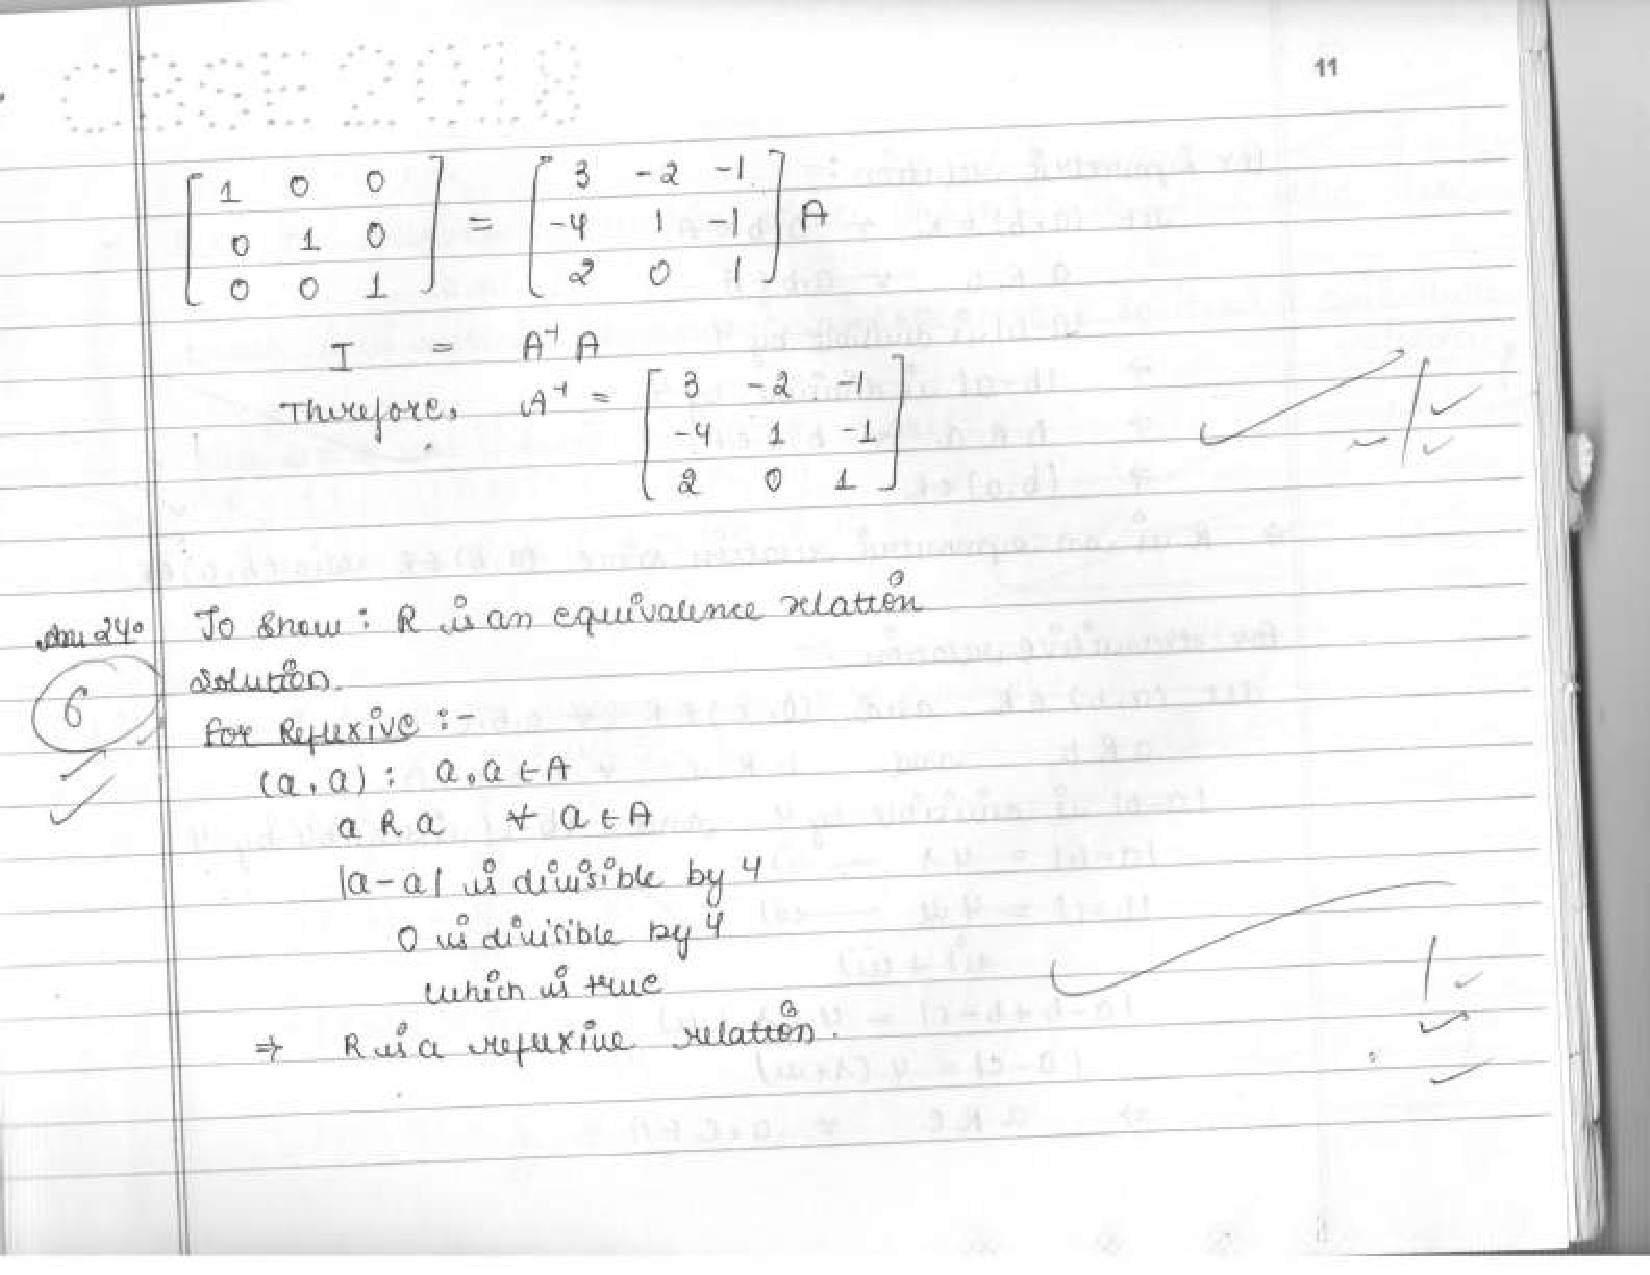 CBSE 2018
11
[1 0 0
0 1 0
0 0 1] = [3 -2 -1
-4 1 -1
2 0 1] A
I = A⁻¹ A
Therefore, A⁻¹ = [3 -2 -1
-4 1 -1
2 0 1]
Ans 24° To show : R is an equivalence relation
Solution.
6
For Reflexive :-
(a, a) : a, a ∈ A
a R a ∀ a ∈ A
|a-a| is divisible by 4
0 is divisible by 4
which is true
⇒ R is a reflexive relation.